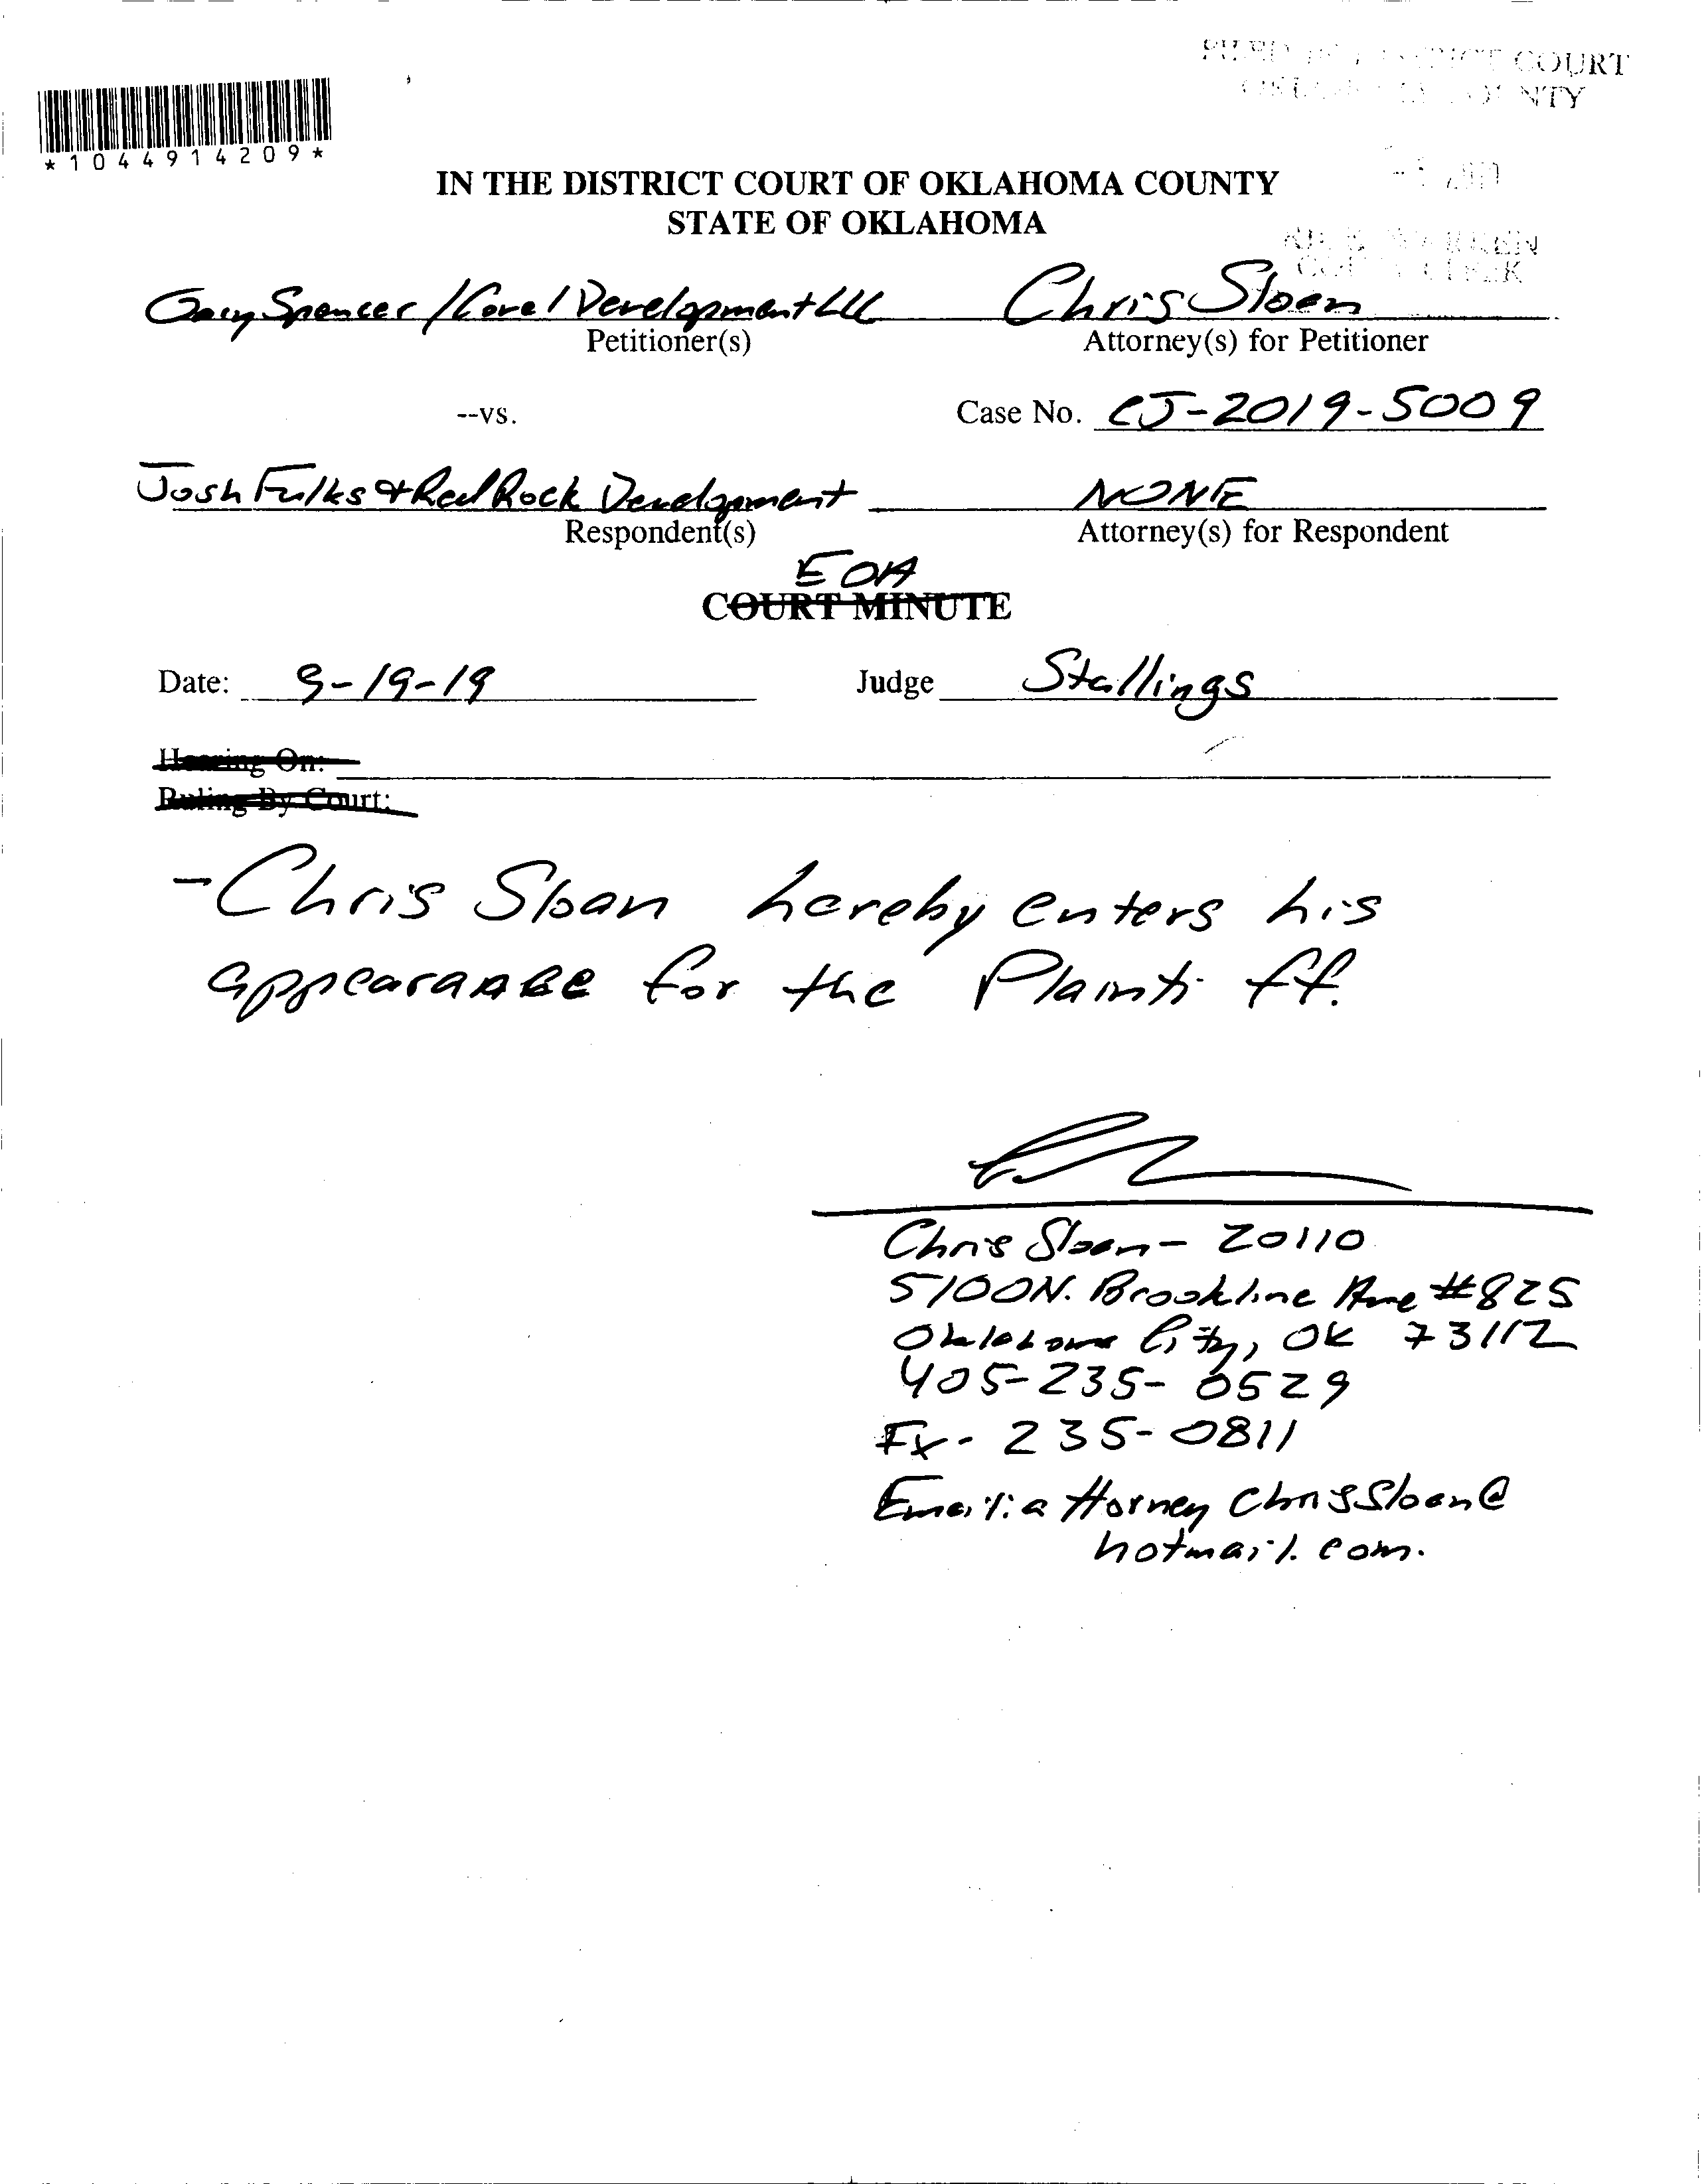 COURT
NTY
*1044914209*
IN THE DISTRICT COURT OF OKLAHOMA COUNTY
STATE OF OKLAHOMA
Gary Spencer / Corel Development LLC Chris Sloan
Petitioner(s) Attorney(s) for Petitioner
--vs. Case No. CJ-2019-5009
Josh Fulks & Red Rock Development NONE
Respondent(s) Attorney(s) for Respondent
EOA
COURT MINUTE
Date: 9-19-19 Judge Stallings
Hearing On:
Ruling By Court:
- Chris Sloan hereby enters his
appearance for the Plaintiff.
Chris Sloan - 20110
5100 N. Brookline Ave #825
Oklahoma City, OK 73112
405-235-0529
Fx - 235-0811
Email: attorneychrissloan@
hotmail.com.